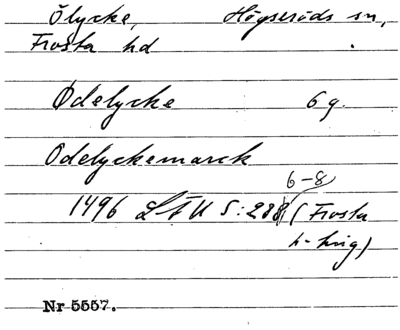 Ölycke, Högseröds sn,
Frosta hd
Ödelycke 6 g.
Odelyckemarck
6-8
1496 LÅU S: 288 (Frosta
h-ting)
Nr 5557.